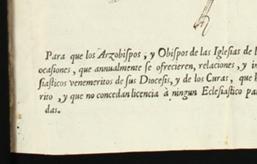 Para que los Arzobispos, y Obispos de las Iglesias de l
ocasiones, que annualmente se ofrecieren, relaciones, y in
siasticos venemeritos de sus Diocesis, y de los Curas, que h
rito, y que no concedan licencia à ningun Eclesiastico pa
das.